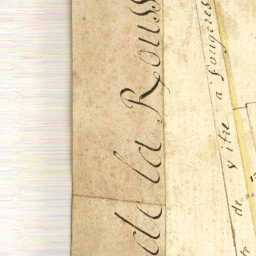 de la Rouss
de Vitre a Fougeres